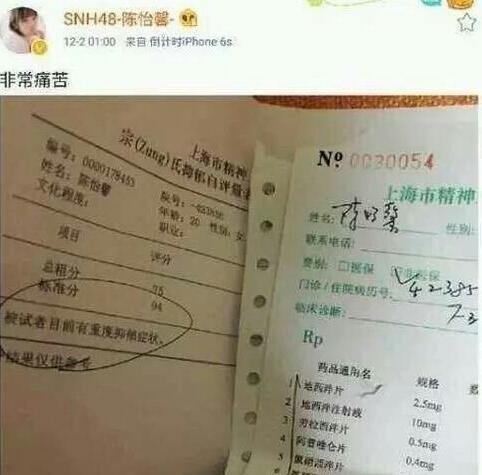 SNH48-陈怡馨-
12-2 01:00 来自 倒计时iPhone 6s
非常痛苦
上海市精神
宗(Zung)氏抑郁自评量表
编号: 0000178453
姓名: 陈怡馨
年龄: 20 性别: 女
文化程度:
职业:
项目 评分
总粗分 75
标准分 94
被试者目前有重度抑郁症状。
结果仅供参考
№ 0030054
上海市精神
姓名: 陈怡馨 性别:
联系电话:
费别: □医保
门诊/住院病历号:
临床诊断:
Rp
药品通用名 规格
1 地西泮片 2.5mg
2 地西泮注射液 10mg
3 劳拉西泮片 0.5mg
4 阿普唑仑片 0.4mg
5 氯硝西泮片